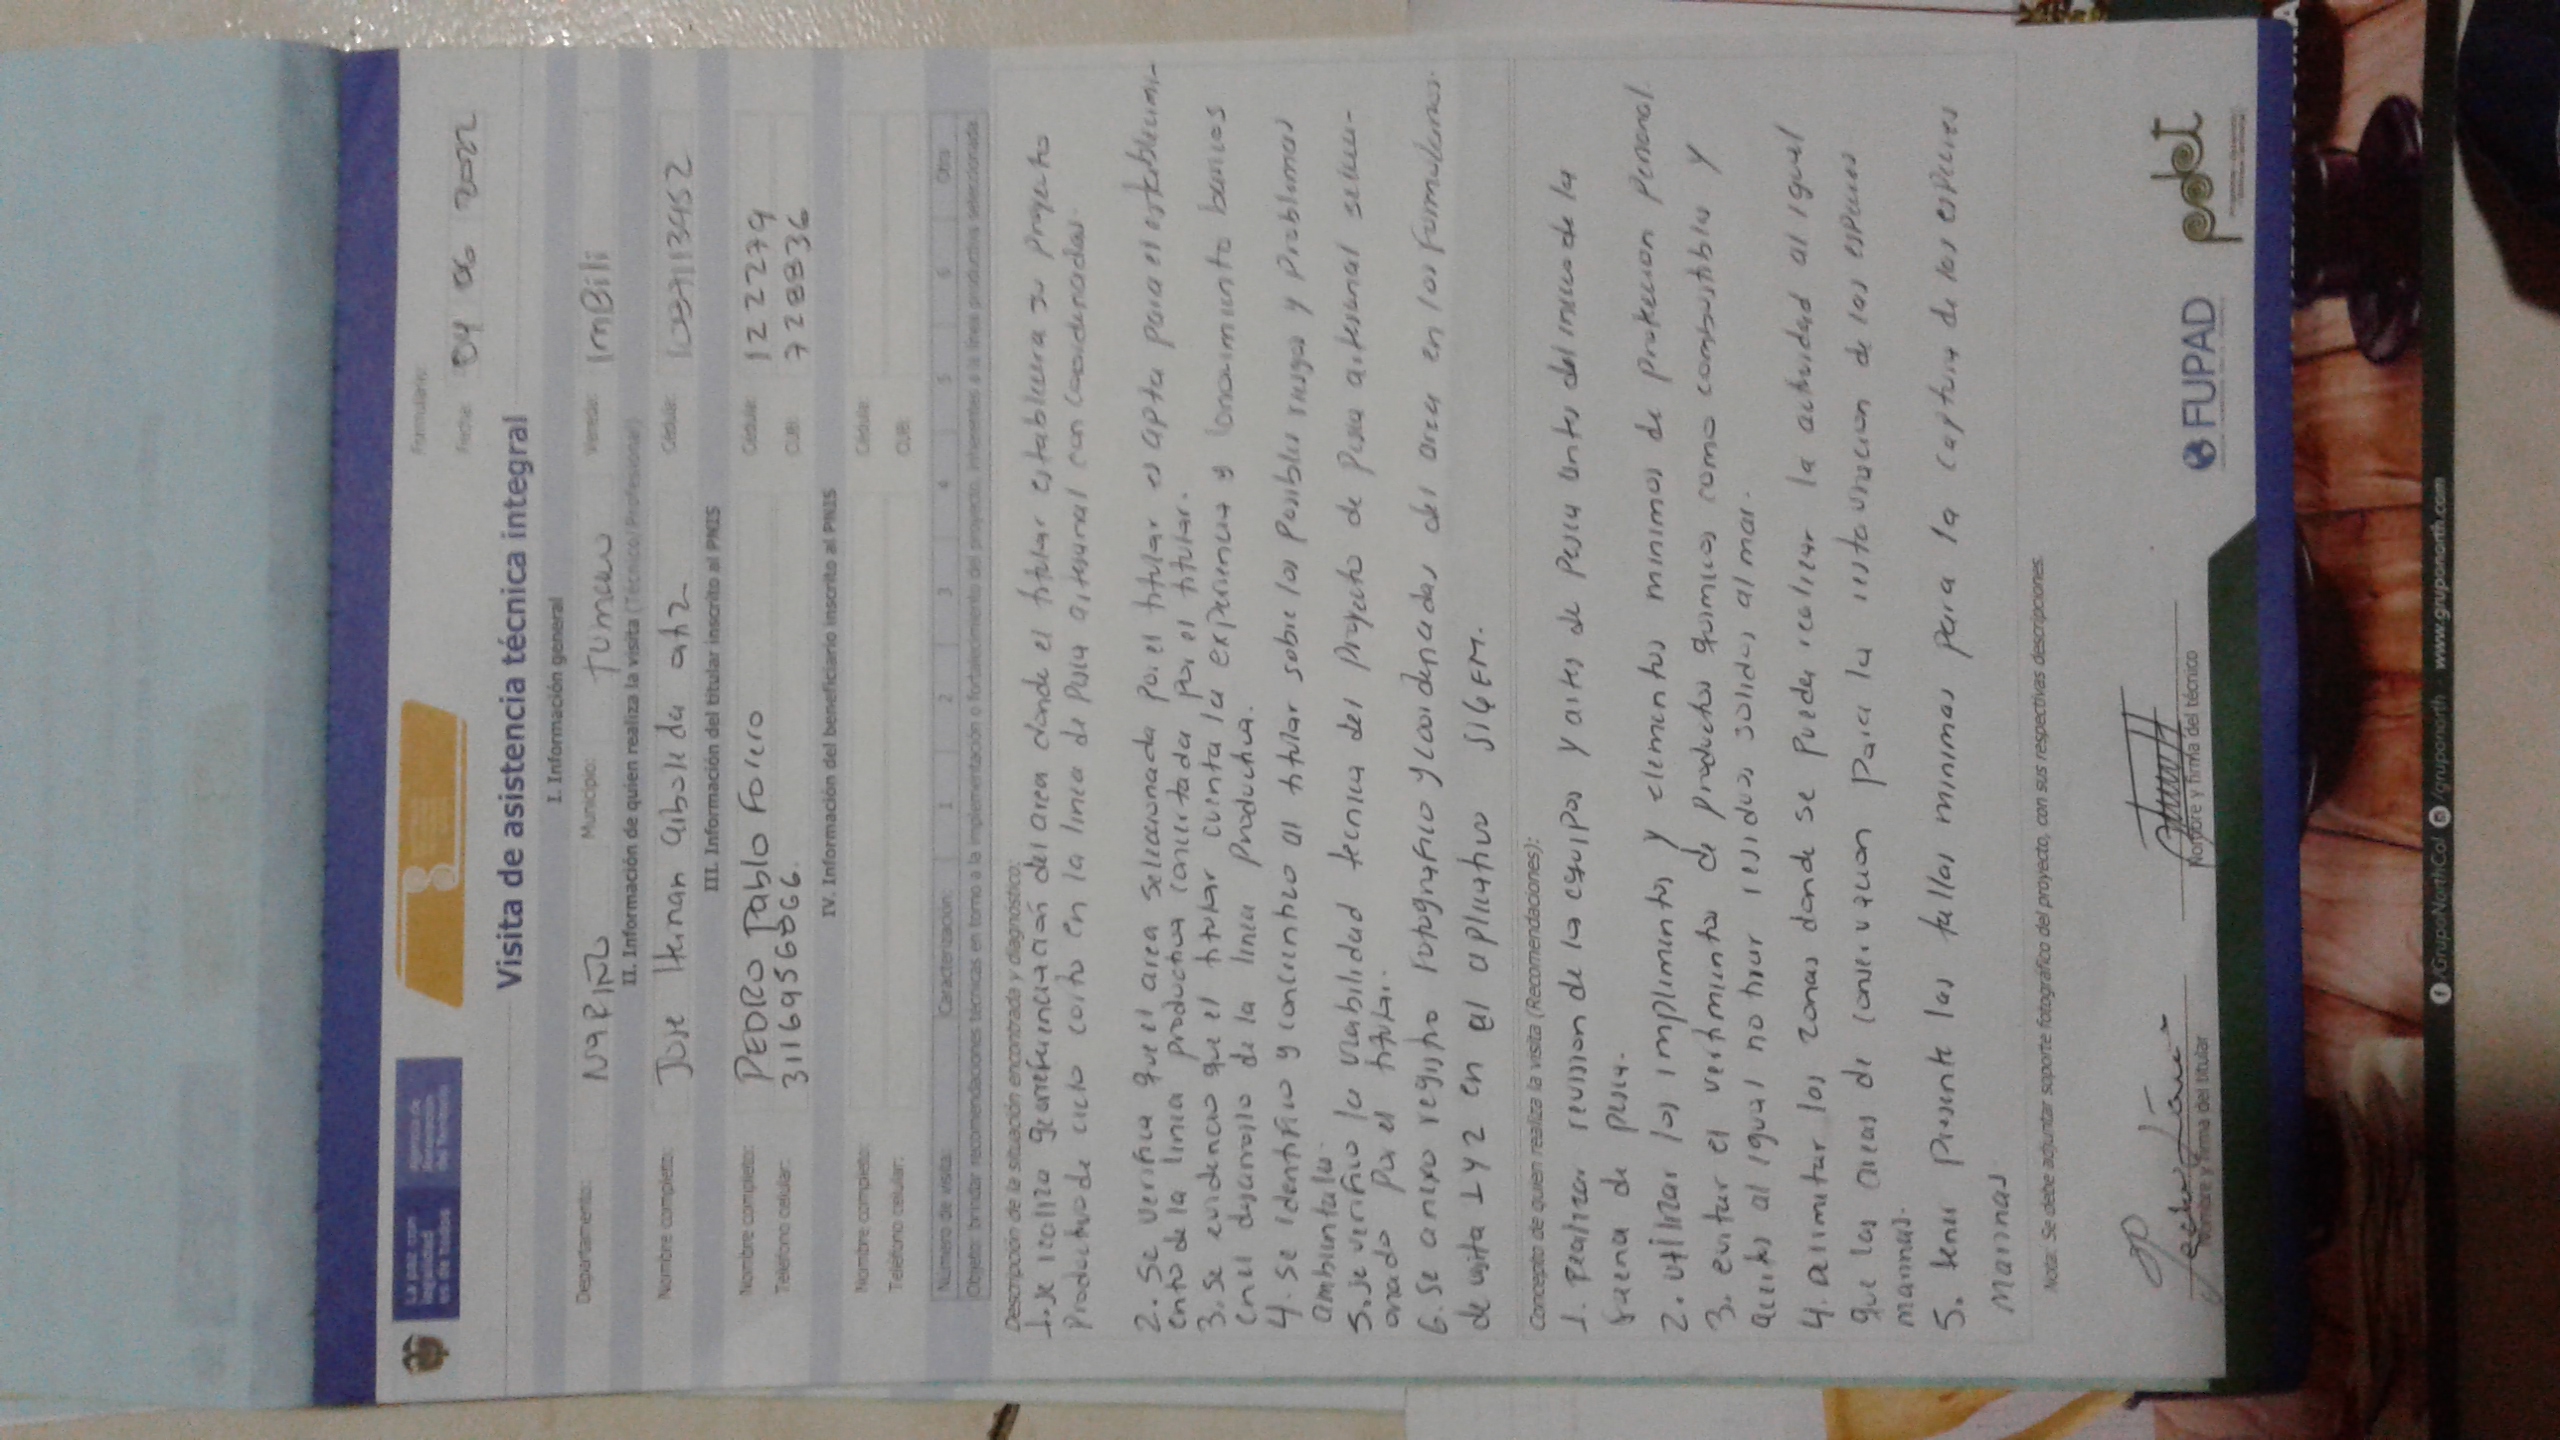 La paz con
legalidad
es de todos
Agencia de
Renovación
del Territorio
Formulario:
Fecha: 04 06 2022
Visita de asistencia técnica integral
I. Información general
Departamento: NARIÑO Municipio: Tumaco Vereda: ImBili
II. Información de quien realiza la visita (Técnico/Profesional)
Nombre completo: Jose Hernan arboleda Cédula: 1087113952
III. Información del titular inscrito al PNIS
Nombre completo: PEDRO Pablo Forero Cédula: 122279
Teléfono celular: 3116956066 CUB: 728836
IV. Información del beneficiario inscrito al PNIS
Nombre completo: Cédula:
Teléfono celular: CUB:
Número de visita: Caracterización: 1 2 3 4 5 6 Otra
Objeto: brindar recomendaciones técnicas en torno a la implementación o fortalecimiento del proyecto, inherentes a la línea productiva seleccionada
Descripción de la situación encontrada y diagnóstico:
1. se realizo georreferenciación del area donde el titular establecera su proyecto
Productivo de ciclo corto en la linea de Pesca artesanal con coordenadas.
2. Se verifica que el area seleccionada por el titular es apta para el establecimi-
ento de la linea productiva concertada por el titular.
3. se evidencio que el titular cuenta la experiencia y conocimiento basicos
en el desarrollo de la linea productiva.
4. se identifico y concientizo al titular sobre los posibles riesgos y problemas
ambientales.
5. se verifico la viabilidad tecnica del proyecto de pesca artesanal selecci-
onado por el titular.
6. Se anexo registro fotografico y coordenadas del area en los formularios
de visita 1 y 2 en el aplicativo SIGEM.
Concepto de quien realiza la visita (Recomendaciones):
1. Realizar revision de los equipos y artes de pesca antes del inicio de la
faena de pesca.
2. utilizar los implementos y elementos minimos de proteccion personal.
3. evitar el vertimiento de productos quimicos como combustible y
aceites al igual no tirar residuos solidos al mar.
4. alimitar las zonas donde se pueda realizar la actividad al igual
que las areas de conservacion para la restauracion de las especies
marinas.
5. tener presente las tallas minimas para la captura de las especies
marinas
Nota: Se debe adjuntar soporte fotográfico del proyecto, con sus respectivas descripciones.
Nombre y firma del titular
Nombre y firma del técnico
FUPAD
pdet
/GrupoNorthCol /gruponorth - www.gruponorth.com